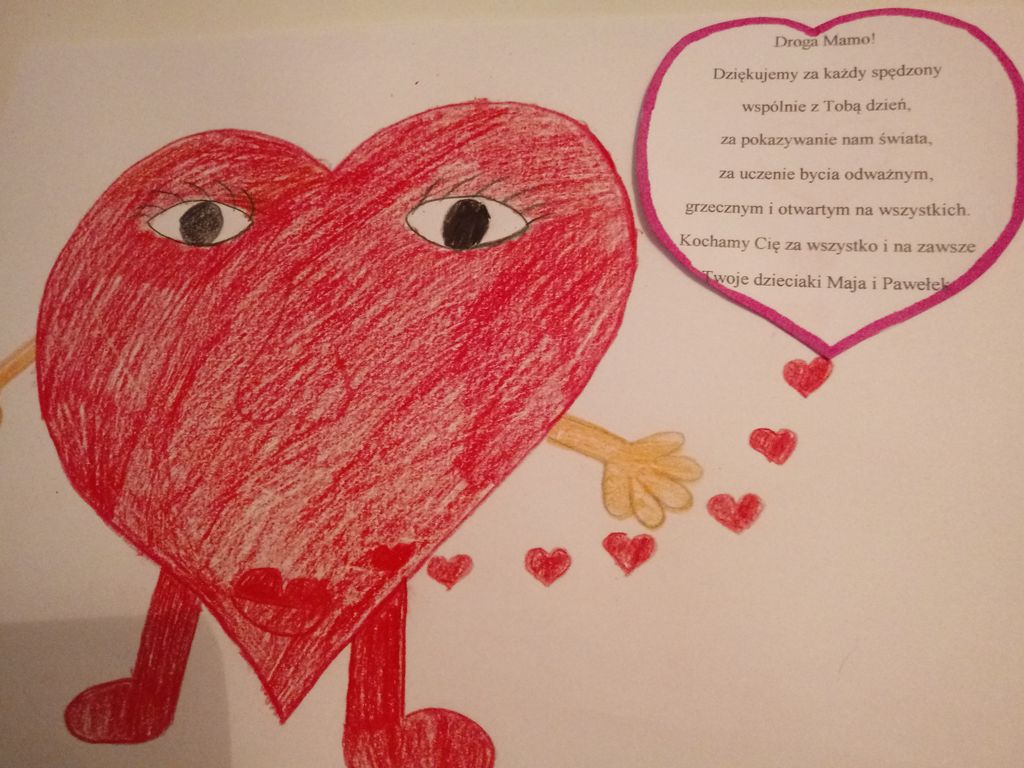 Droga Mamo!
Dziękujemy za każdy spędzony
wspólnie z Tobą dzień,
za pokazywanie nam świata,
za uczenie bycia odważnym,
grzecznym i otwartym na wszystkich.
Kochamy Cię za wszystko i na zawsze
Twoje dzieciaki Maja i Pawełek